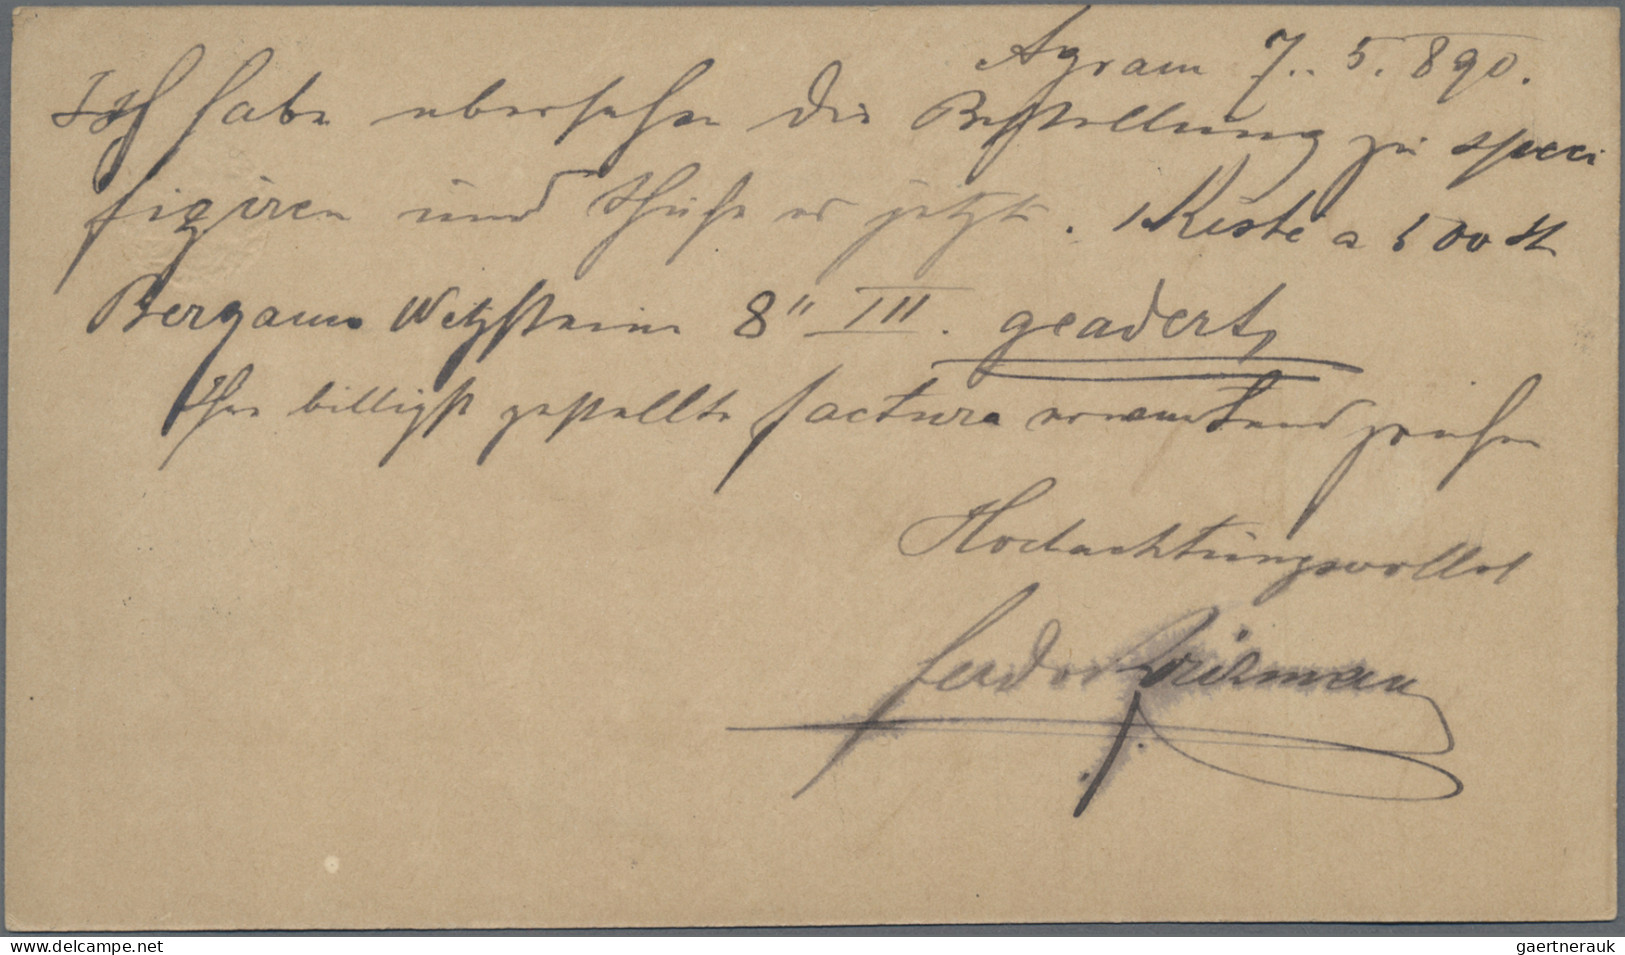 Agram 7.. 5. 890.
Ich habe übersehen die Bestellung zu speci
fiziren und thuhe es jetzt. 1 Kiste a 500 St
Bergamo Wetzsteine 8" III. geadert,
Ihre billigst gestellte factura erwartend zeichne
Hochachtungsvollst
delcampe.net
gaertnerauk